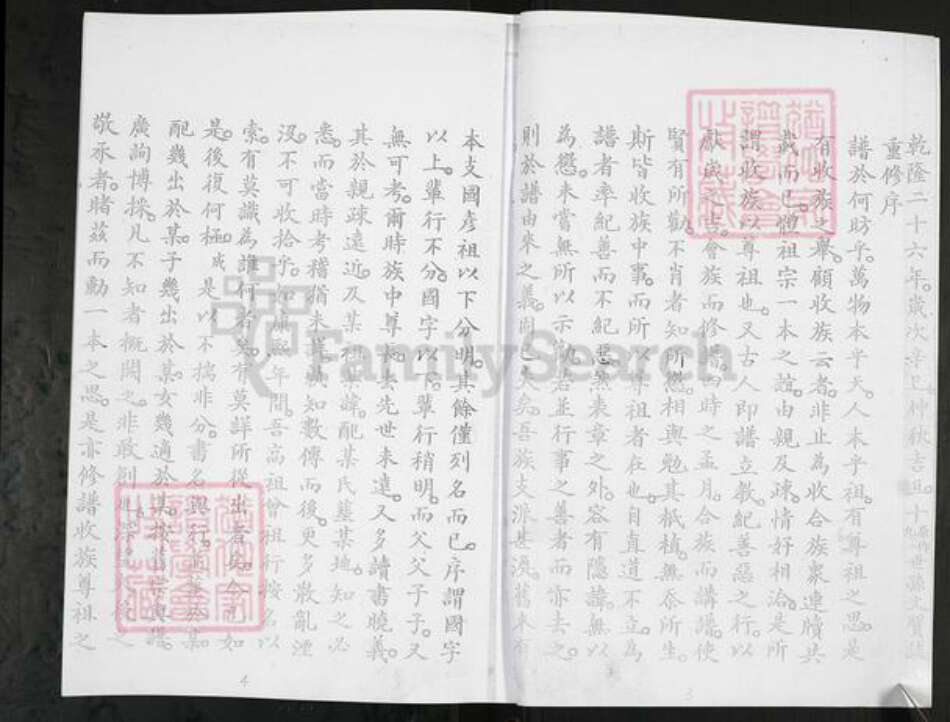 乾隆二十六年。歲次辛巳仲秋吉旦。十世孫文賢誌
重修序
譜於何昉乎。萬物本乎天。人本乎祖。有尊祖之思。是
有收族之舉。顧收族云者。非止為收合族衆連牘共
載而已。體祖宗一本之誼。由親及疎。情好相洽。是所
謂收族以尊祖也。又古人即譜立教。紀善惡之行。以
獻歲之吉。會族而修譜。四時之孟月。合族而講譜。使
賢有所勸。不肖者知所懲。相與勉其抵植。無忝所生。
斯皆收族中事。而所以尊祖者在也。自直道不立。為
譜者率紀善而不紀惡。無表章之外。容有隱諱。無以
為懲。未嘗無所以示勸。若並行事之善者而亦去之。
則於譜由來之義。固已失矣。吾族支派甚漫。舊未有
本支國彥祖以下分明。其餘僅列名而已。序謂國字
以上。輩行不分。國字以下。輩行稍明。而父父子子。又
無可考。爾時族中尊長。去先世未遠。又多讀書曉義。
其於親疎遠近。及某祖某諱。配某氏。葬某地。知之必
悉。而當時考稽猶未詳識。知數傳而後。更多散亂湮
沒。不可收拾乎。康熙年間。吾高祖曾祖行。按名以
索。有莫識為誰行者矣。有莫詳所從出者矣。今而如
是。後復何極。是以不揣非分。書名與行。其葬於某。
配幾出於某。子幾出於某。女幾適於某。按舊宗與譜。
廣詢博採。凡不知者概闕之。非敢創也。深
敬承者。睹茲而動一本之思。是亦修譜收族尊祖之
3
4
FamilySearch